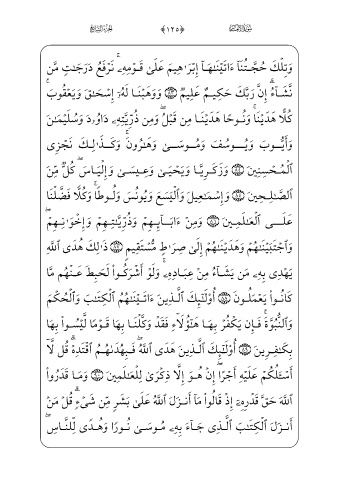 الجزء السابع ﴿١٢٥﴾ سورة الأنعام
وَتِلْكَ حُجَّتُنَآ ءَاتَيْنَٰهَآ إِبْرَٰهِيمَ عَلَىٰ قَوْمِهِۦۚ نَرْفَعُ دَرَجَٰتٍ مَّن
نَّشَآءُۗ إِنَّ رَبَّكَ حَكِيمٌ عَلِيمٌ ۝٨٣ وَوَهَبْنَا لَهُۥٓ إِسْحَٰقَ وَيَعْقُوبَۚ
كُلًّا هَدَيْنَاۚ وَنُوحًا هَدَيْنَا مِن قَبْلُۖ وَمِن ذُرِّيَّتِهِۦ دَاوُۥدَ وَسُلَيْمَٰنَ
وَأَيُّوبَ وَيُوسُفَ وَمُوسَىٰ وَهَٰرُونَۚ وَكَذَٰلِكَ نَجْزِى
ٱلْمُحْسِنِينَ ۝٨٤ وَزَكَرِيَّا وَيَحْيَىٰ وَعِيسَىٰ وَإِلْيَاسَۖ كُلٌّ مِّنَ
ٱلصَّٰلِحِينَ ۝٨٥ وَإِسْمَٰعِيلَ وَٱلْيَسَعَ وَيُونُسَ وَلُوطًاۚ وَكُلًّا فَضَّلْنَا
عَلَى ٱلْعَٰلَمِينَ ۝٨٦ وَمِنْ ءَابَآئِهِمْ وَذُرِّيَّٰتِهِمْ وَإِخْوَٰنِهِمْۖ
وَٱجْتَبَيْنَٰهُمْ وَهَدَيْنَٰهُمْ إِلَىٰ صِرَٰطٍ مُّسْتَقِيمٍ ۝٨٧ ذَٰلِكَ هُدَى ٱللَّهِ
يَهْدِى بِهِۦ مَن يَشَآءُ مِنْ عِبَادِهِۦۚ وَلَوْ أَشْرَكُوا۟ لَحَبِطَ عَنْهُم مَّا
كَانُوا۟ يَعْمَلُونَ ۝٨٨ أُو۟لَٰٓئِكَ ٱلَّذِينَ ءَاتَيْنَٰهُمُ ٱلْكِتَٰبَ وَٱلْحُكْمَ
وَٱلنُّبُوَّةَۚ فَإِن يَكْفُرْ بِهَا هَٰٓؤُلَآءِ فَقَدْ وَكَّلْنَا بِهَا قَوْمًا لَّيْسُوا۟ بِهَا
بِكَٰفِرِينَ ۝٨٩ أُو۟لَٰٓئِكَ ٱلَّذِينَ هَدَى ٱللَّهُۖ فَبِهُدَىٰهُمُ ٱقْتَدِهْۗ قُل لَّآ
أَسْـَٔلُكُمْ عَلَيْهِ أَجْرًاۖ إِنْ هُوَ إِلَّا ذِكْرَىٰ لِلْعَٰلَمِينَ ۝٩٠ وَمَا قَدَرُوا۟
ٱللَّهَ حَقَّ قَدْرِهِۦٓ إِذْ قَالُوا۟ مَآ أَنزَلَ ٱللَّهُ عَلَىٰ بَشَرٍ مِّن شَىْءٍۗ قُلْ مَنْ
أَنزَلَ ٱلْكِتَٰبَ ٱلَّذِى جَآءَ بِهِۦ مُوسَىٰ نُورًا وَهُدًى لِّلنَّاسِۖ